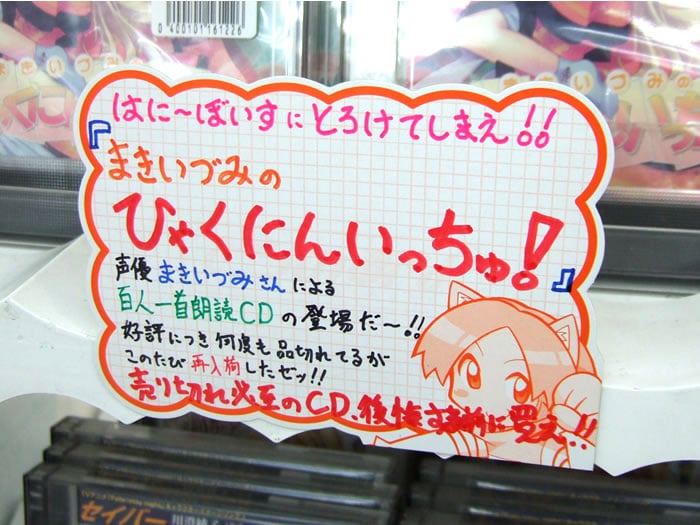 0400101161226
はに～ぼいすにとろけてしまえ!!
『まきいづみの
ひゃくにんいっちゅ!』
声優まきいづみさんによる
百人一首朗読CDの登場だ～!!
好評につき何度も品切れてるが
このたび再入荷したゼッ!!
売り切れ必至のCD、後悔する前に買え!!
セイバー